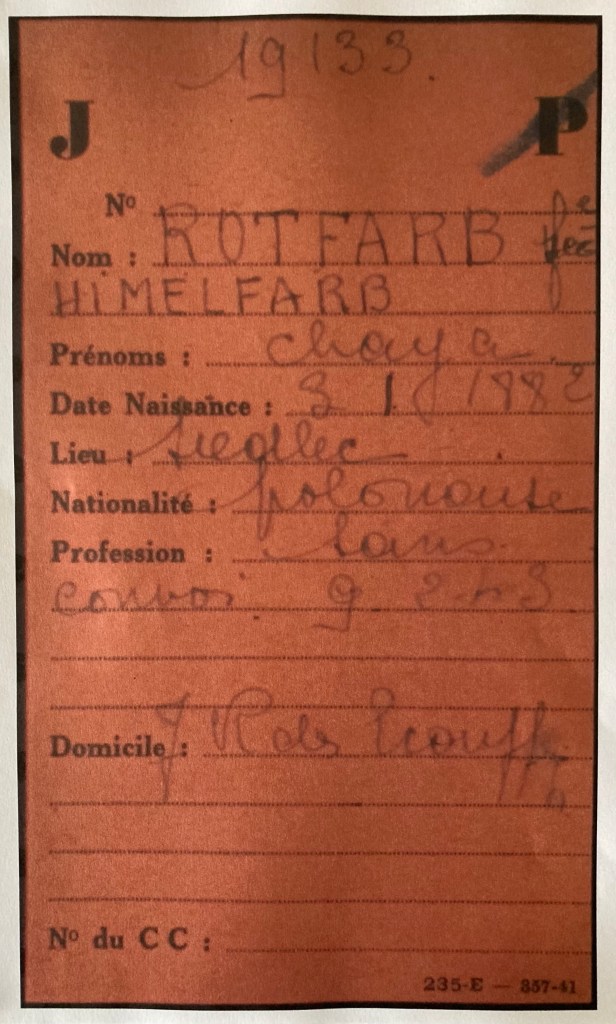 19133.
J P
Nº
Nom : ROTFARB née
HIMELFARB
Prénoms : chaya
Date Naissance : 3 1 1882
Lieu : Siedlec
Nationalité : polonaise
Profession : sans
convoi 9.2.43
Domicile : 7 R des Ecouffes
Nº du C C :
235-E — 357-41